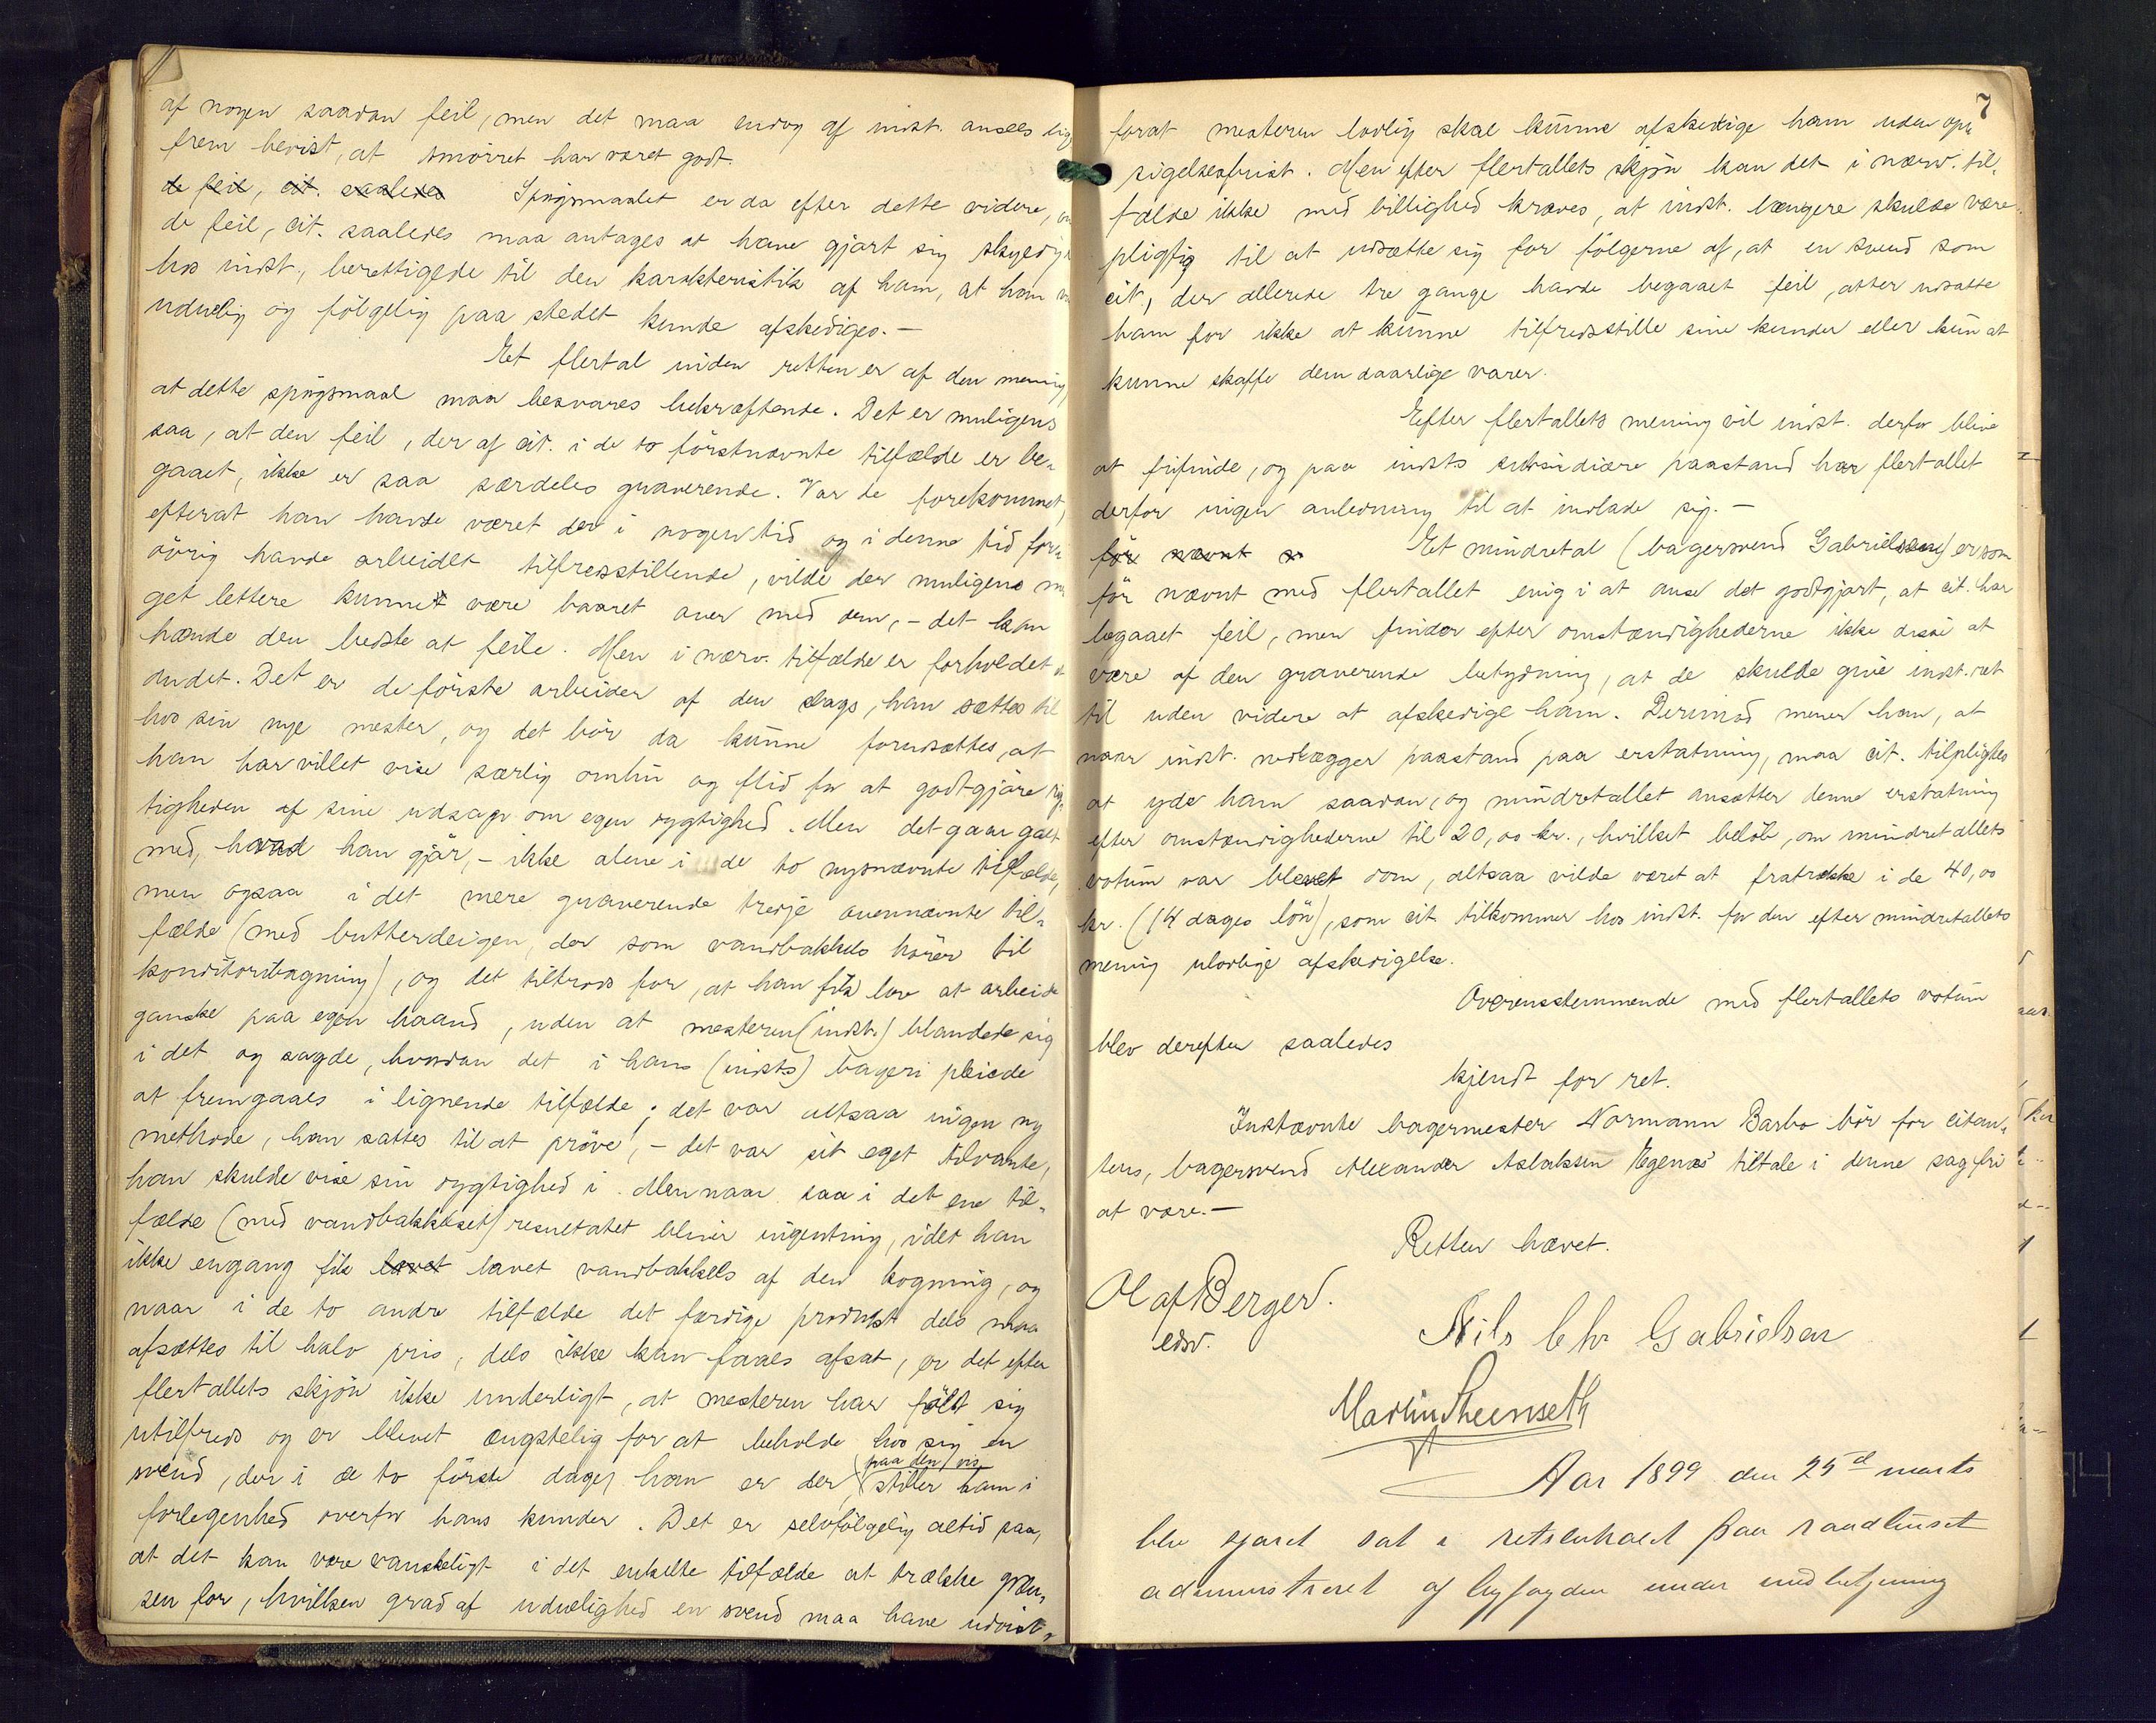 af nogen saadan feil, men det maa endog af indst. ansees lige
frem bevist, at smörret har været godt.
de feil, cit. saaledes Spörgsmaalet er da efter dette videre, om
de feil, cit. saaledes maa antages at have gjort sig skyldig i
hos indst., berettigede til den karakteristik af ham, at han var
uduelig og fölgelig paa stedet kunde afskediges. —
Et flertal inden retten er af den mening,
at dette spörgsmaal maa besvares bekræftende. Det er muligens
saa, at den feil, der af cit. i de to förstnævnte tilfælde er be-
gaaet, ikke er saa særdeles graverende. Var de forekommet,
efterat han havde været der i nogen tid og i denne tid for-
övrig havde arbeidet tilfredsstillende, vilde der muligens me-
get lettere kunnet være baaret over med dem, – det kan
hænde den bedste at feile. Men i nærv. tilfælde er forholdet et
andet. Det er de förste arbeider af den slags, han sættes til
hos sin nye mester, og det bör da kunne forudsættes, at
han har villet vise særlig omhu og flid for at godtgjöre rig-
tigheden af sine udsagn om egen dygtighed. Men det gaar galt
med, hvad han gjör, – ikke alene i de to nysnævnte tilfælde,
men ogsaa i det mere graverende tredje ovennævnte til-
fælde (med butterdeigen, der som vandbakkels hörer til
konditorbagning), og det tiltrods for, at han fik lov at arbeide
ganske paa egen haand, uden at mesteren (indst.) blandede sig
i det og sagde, hvordan det i hans (indsts) bageri pleiede
at fremgaaes i lignende tilfælde; det var altsaa ingen ny
methode, han sattes til at pröve, – det var sit eget tilvante,
han skulde vise sin dygtighed i. Men naar saa i det ene til-
fælde (med vandbakkelset) resultatet bliver ingenting, idet han
ikke engang fik lavet lavet vandbakkels af den kogning, og
naar i de to andre tilfælde det færdige produkt dels maa
afsættes til halv pris, dels ikke kan faaes afsat, er det efter
flertallets skjön ikke underligt, at mesteren har fölt sig
utilfreds og er blevet ængstelig for at beholde hos sig en
svend, der i de to förste dage, han er der, (paa den vis) stiller ham i
forlegenhed overfor hans kunder. Det er selvfölgelig altid saa,
at det kan være vanskeligt i det enkelte tilfælde at trække græn-
sen for, hvilken grad af uduelighed en svend maa have udvist,
7
forat mesteren lovlig skal kunne afskedige ham uden op-
sigelsesfrist. Men efter flertallets skjön kan det i nærv. til-
fælde ikke med billighed kræves, at indst. længere skulde være
pligtig til at udsætte sig for fölgerne af, at en svend som
cit., der allerede tre gange havde begaaet feil, atter udsatte
ham for ikke at kunne tilfredsstille sine kunder eller kun at
kunne skaffe dem daarlige varer.
Efter flertallets mening vil indst. derfor blive
at frifinde, og paa indsts subsidiære paastand har flertallet
derfor ingen anledning til at indlade sig. —
för nævnt Et mindretal (bagersvend Gabrielsen) er som
för nævnt med flertallet enig i at anse det godtgjort, at cit. har
begaaet feil, men finder efter omstændighederne ikke disse at
være af den graverende betydning, at de skulde give indst. ret
til uden videre at afskedige ham. Derimod mener han, at
naar indst. nedlægger paastand paa erstatning, maa cit. tilpligtes
at yde ham saadan, og mindretallet ansætter denne erstatning
efter omstændighederne til 20,00 kr., hvilket belöb, om mindretallets
votum var blevet dom, altsaa vilde været at fratrække i de 40,00
kr. (14 dages lön), som cit. tilkommer hos indst. for den efter mindretallets
mening ulovlige afskedigelse.
Overensstemmende med flertallets votum
blev derefter saaledes
kjendt for ret.
Indstævnte bagermester Normann Barbo bör for citan-
tens, bagersvend Alexander Aslaksen Egenæs' tiltale i denne sag fri
at være. —
Retten hævet.
Olaf Berger.
edsv.
Nils Chr Gabrielsen
Martin Steenseth
Aar 1899 den 25d marts
blev gjæsteret sat i retslokalet paa raadhuset
administreret af byfogden under medbetjening